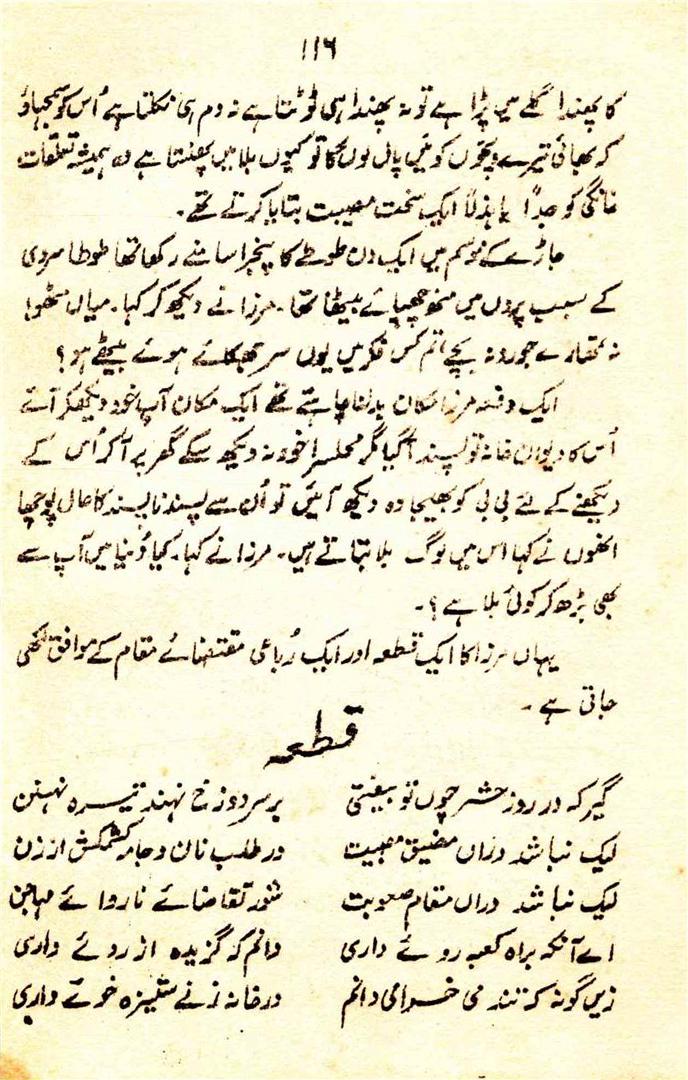 ۱۱۶
کا پھندا گلے میں پڑا ہے تو نہ پھندا ہی ٹوٹتا ہے نہ دم ہی نکلتا ہے اُس کو سمجھاؤ
کہ بھائی تیرے بچّوں کو مَیں پال لوں گا تو کیوں بلا میں پھنستا ہے وہ ہمیشہ تعلقات
خانگی کو جدّاً یا ہزلاً ایک سخت مصیبت بتایا کرتے تھے۔
جاڑے کے موسم میں ایک دن طوطے کا پنجرا سامنے رکھا تھا طوطا سردی
کے سبب پروں میں منھ چھپائے بیٹھا تھا۔ مرزا نے دیکھ کر کہا۔ میاں مٹھو!
نہ تمھارے جورو نہ بچے تم کس فکر میں یوں سر جھکائے ہوئے بیٹھے ہو؟
ایک دفعہ مرزا مکان بدلنا چاہتے تھے ایک مکان آپ خود دیکھکر آئے
اُس کا دیوان خانہ تو پسند آگیا مگر محلسرا خود نہ دیکھ سکے گھر پر آکر اُس کے
دیکھنے کے لئے بی بی کو بھیجا وہ دیکھ آئیں تو اُن سے پسند ناپسند کا حال پوچھا
انھوں نے کہا اس میں لوگ بلا بتاتے ہیں۔ مرزا نے کہا۔ کیا دُنیا میں آپ سے
بھی بڑھ کر کوئی بلا ہے؟۔
یہاں مرزا کا ایک قطعہ اور ایک رُباعی مقتضائے مقام کے موافق لکھی
جاتی ہے۔
قطعہ
گیر کہ در روز حشر چوں تو بیفتی بر سر دوزخ نہند تیرہ نہنبن
لیک نباشد دراں مضیق مصیبت در طلب نان و جامہ کشمکش از زن
لیک نباشد دراں مقام صعوبت شور تقاضائے ناروائے مہاجن
اے آنکہ براہ کعبہ روئے داری دانم کہ گزیدہ آرزوئے داری
زیں گونہ کہ تند می خرامی دانم در خانہ زنے ستیزہ خوئے داری